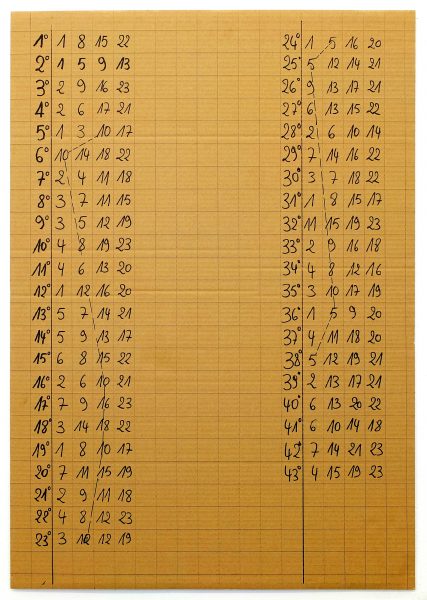 1° 1 8 15 22
2° 1 5 9 13
3° 2 9 16 23
4° 2 6 17 21
5° 1 3 10 17
6° 10 14 18 22
7° 2 4 11 18
8° 3 7 11 15
9° 3 5 12 19
10° 4 8 19 23
11° 4 6 13 20
12° 1 12 16 20
13° 5 7 14 21
14° 5 9 13 17
15° 6 8 15 22
16° 2 6 10 21
17° 7 9 16 23
18° 3 14 18 22
19° 1 8 10 17
20° 7 11 15 19
21° 2 9 11 18
22° 4 8 12 23
23° 3 10 12 19
24° 1 5 16 20
25° 5 12 14 21
26° 9 13 17 21
27° 6 13 15 22
28° 2 6 10 14
29° 7 14 16 22
30° 3 7 18 22
31° 1 8 15 17
32° 11 15 19 23
33° 2 9 16 18
34° 4 8 12 16
35° 3 10 17 19
36° 1 5 9 20
37° 4 11 18 20
38° 5 12 19 21
39° 2 13 17 21
40° 6 13 20 22
41° 6 10 14 18
42° 7 14 21 23
43° 4 15 19 23